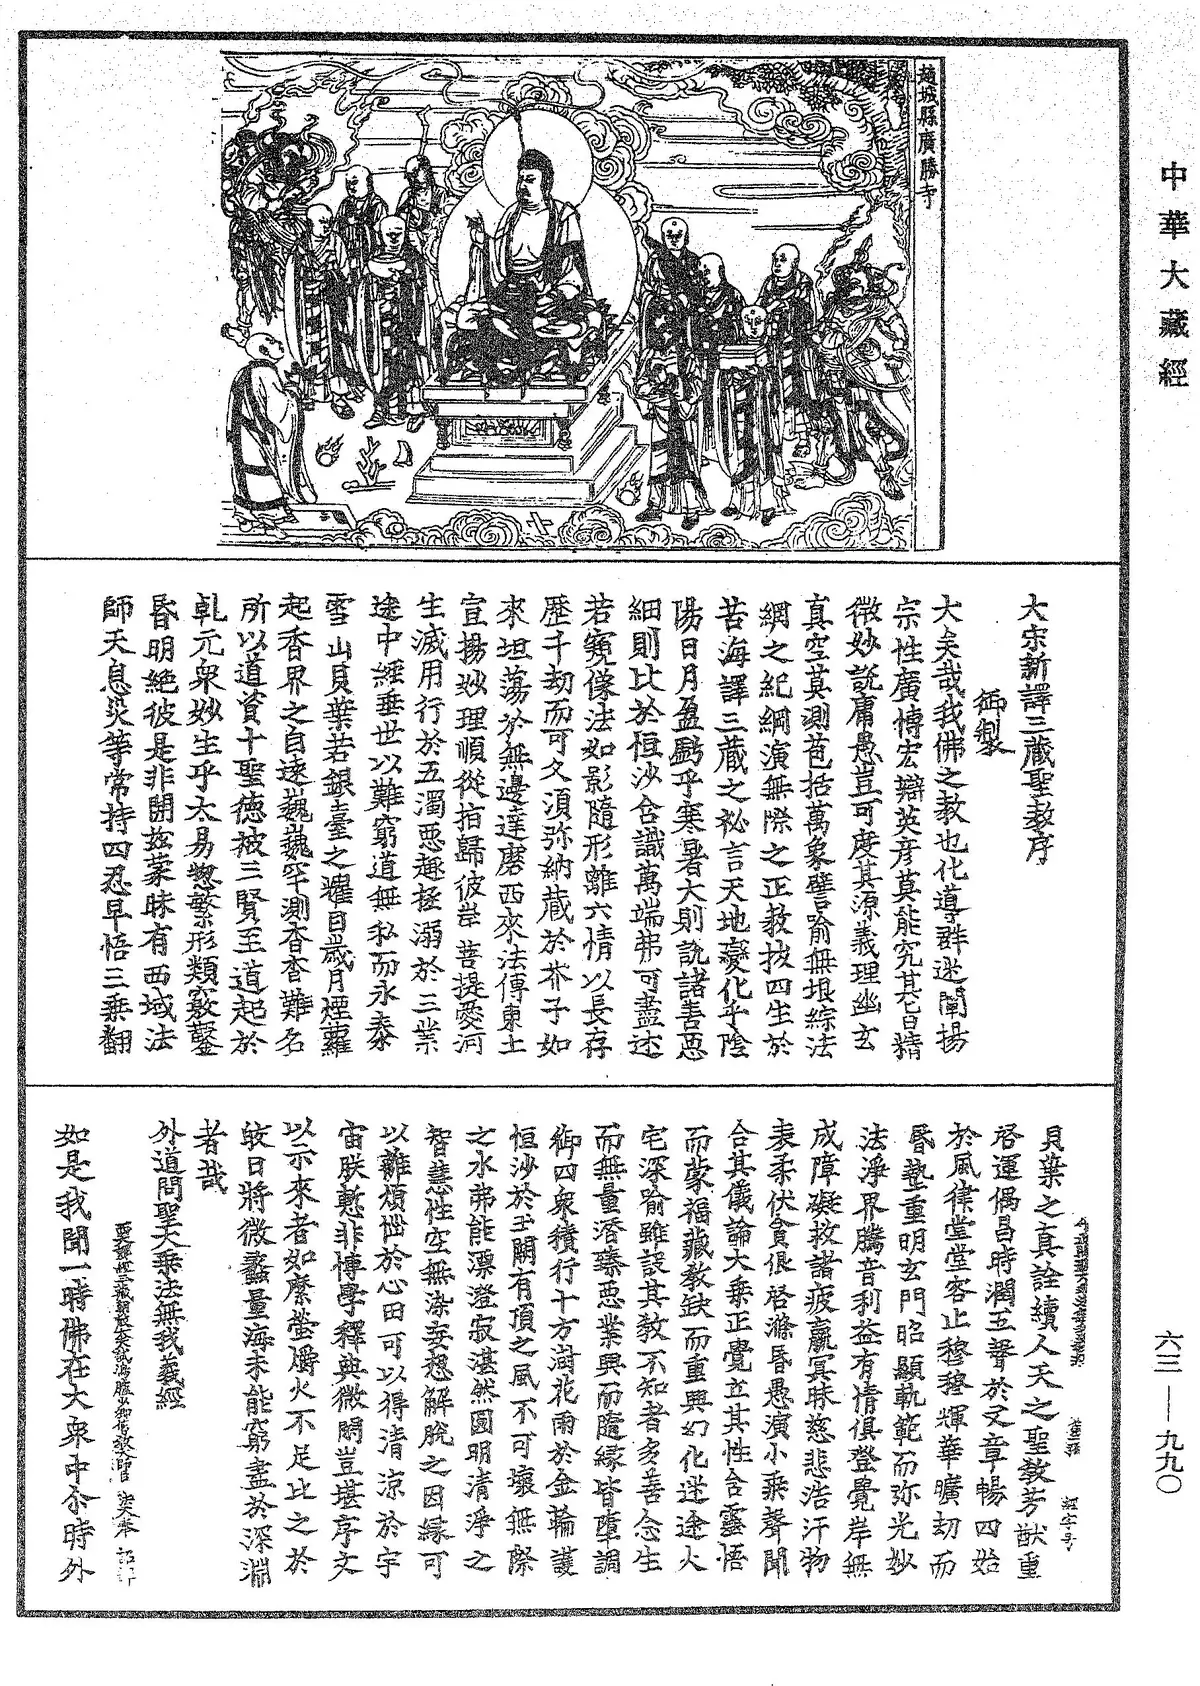 中華大藏經
趙城縣廣勝寺
大宋新譯三藏聖教序
御製
大矣哉我佛之教也化導群迷闡揚
宗性廣博宏辯英彦莫能究其旨精
微妙説庸愚豈可度其源義理幽玄
真空莫測苞括萬象譬喻無垠綜法
網之紀綱演無際之正教拔四生於
苦海譯三藏之祕言天地變化乎陰
陽日月盈虧乎寒暑大則説諸善惡
細則比於恒沙含識萬端弗可盡述
若窺像法如影隨形離六情以長存
歷千劫而可久須弥納藏於芥子如
來坦蕩於無邊達磨西來法傳東土
宣揚妙理順從指歸彼岸菩提愛河
生滅用行於五濁惡趣拯溺於三業
途中經垂世以難窮道無私而永泰
雪山貝葉若銀臺之耀目歲月煙蘿
起香界之自遠巍巍罕測杳杳難名
所以道資十聖德被三賢至道起於
乹元衆妙生乎太易惣繁形類竅鑿
昏明絶彼是非開茲蒙昧有西域法
師天息災等常持四忍早悟三乘翻
貝葉之真詮續人天之聖教芳猷重
啓運偶昌時潤五聲於文章暢四始
於風律堂堂容止穆穆輝華曠劫而
昏墊重明玄門昭顯軌範而弥光妙
法淨界騰音利益有情俱登覺岸無
成障礙救諸疲羸冥昧慈悲浩汗物
表柔伏貪佷啓滌昏愚演小乘聲聞
合其儀論大乘正覺立其性含靈悟
而蒙福藏教缺而重興幻化迷途火
宅深喻雖設其教不知者多善念生
而無量潛臻惡業興而隨緣皆墮調
御四衆積行十方澍花雨於金輪護
恒沙於玉闕有頂之風不可壞無際
之水弗能漂澄寂湛然圓明清淨之
智慧性空無染妄想解脱之因緣可
以離煩惱於心田可以得清涼於宇
宙朕慙非博學釋典微閑豈堪序文
以示來者如縻螢爝火不足比之於
皎日將微蠡量海未能窮盡於深淵
者哉
外道問聖大乘法無我義經
如是我聞一時佛在大衆中尒時外
六三—九九〇